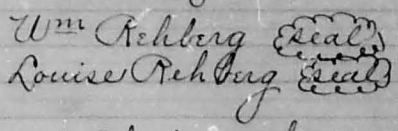 Wm Rehberg seal
Louise Rehberg seal